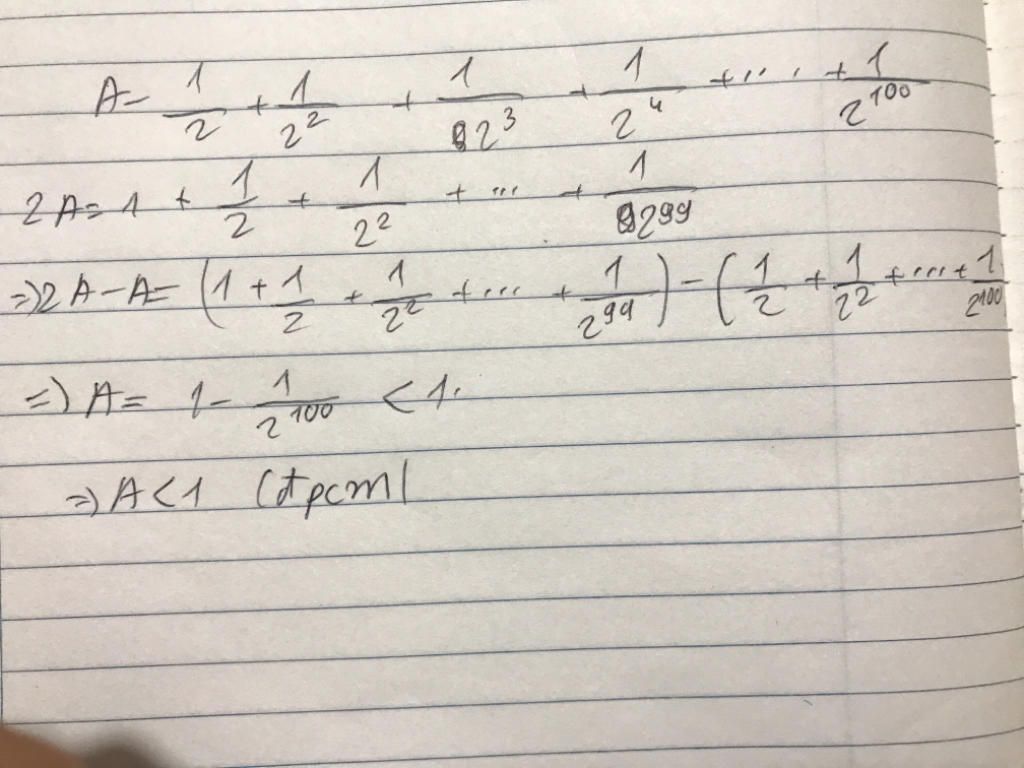 A = 1/2 + 1/2² + 1/2³ + 1/2⁴ + .... + 1/2¹⁰⁰
2A = 1 + 1/2 + 1/2² + ... + 1/2⁹⁹
=> 2A - A = (1 + 1/2 + 1/2² + ... + 1/2⁹⁹) - (1/2 + 1/2² + ... + 1/2¹⁰⁰
=> A = 1 - 1/2¹⁰⁰ < 1.
=> A < 1 (đpcm)